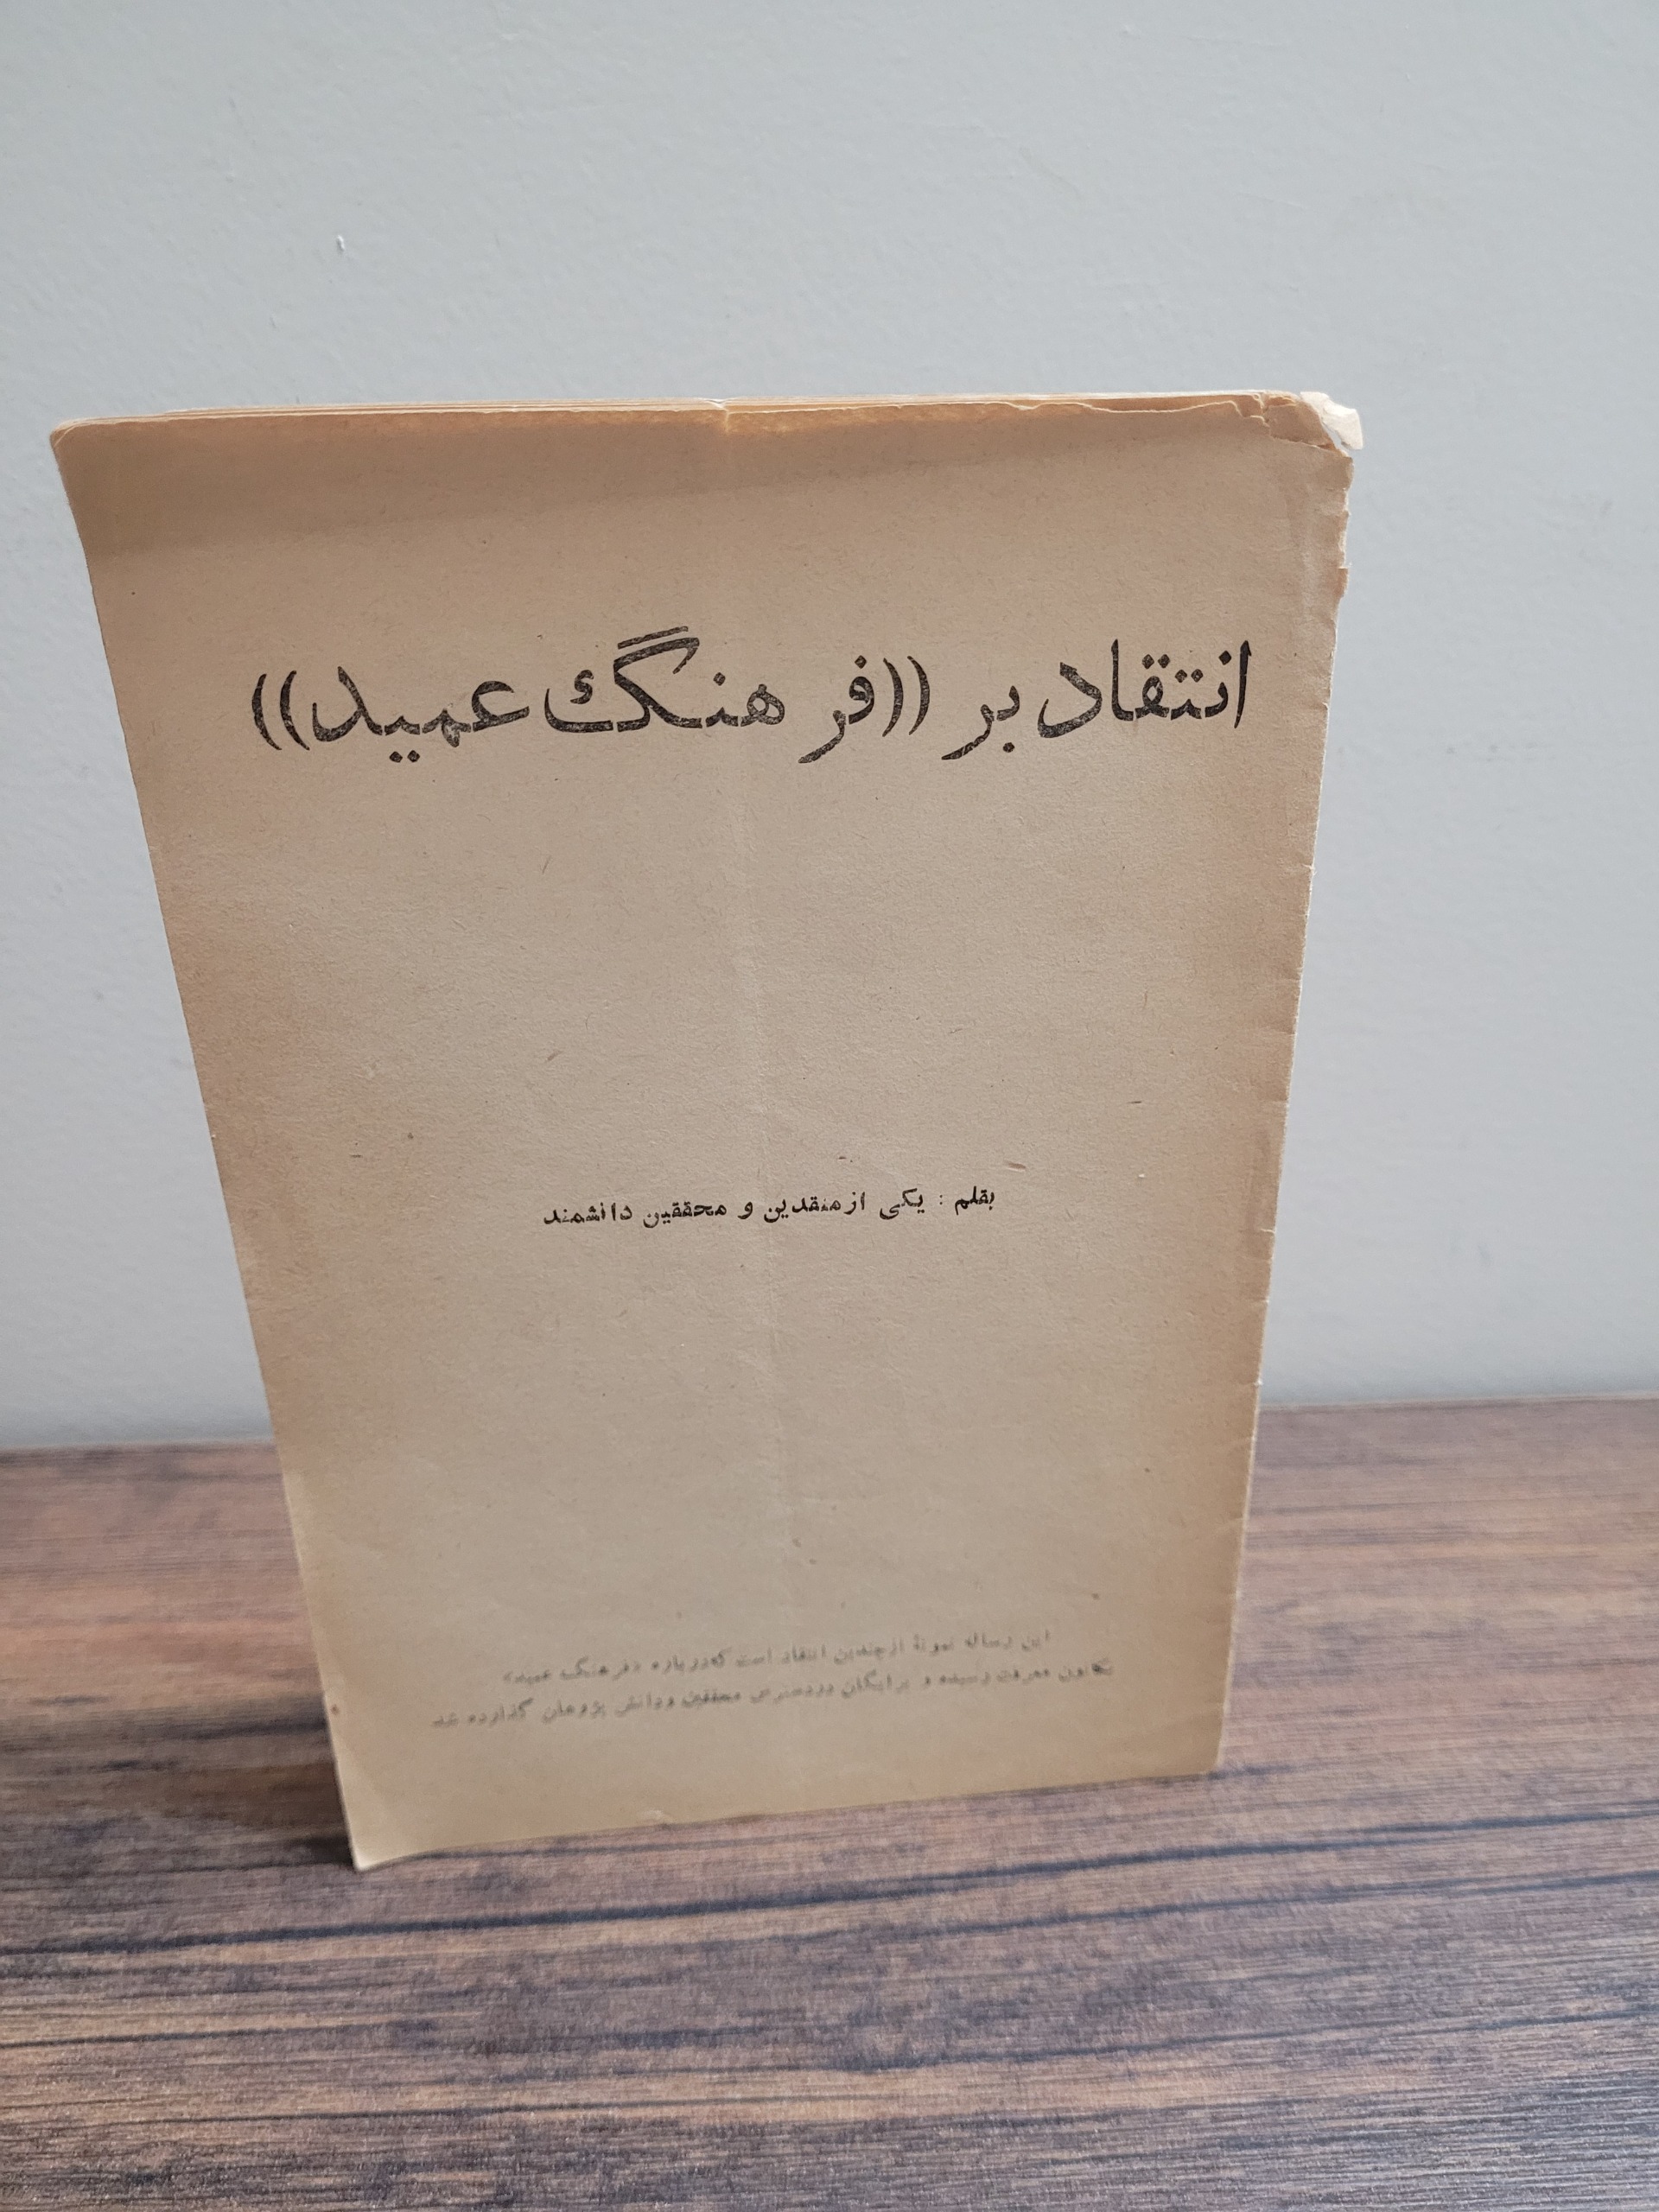 انتقاد بر ((فرهنگ عمید))
بقلم : یکی از منقدین و محققین دانشمند
این رساله نمونهٔ از چندین انتقاد است که درباره «فرهنگ عمید»
بکانون معرفت رسیده و برایگان در دسترس محققین و دانش پژوهان گذارده شد